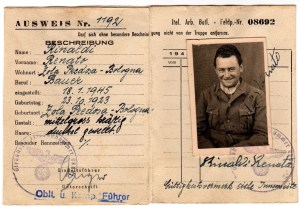 AUSWEIS Nr. 1192
Darf sich ohne besondere
BESCHREIBUNG
Name: Rinaldi
Vorname: Renato
Wohnort: Zola Predosa - Bologna
Beruf: Bauer
eingestellt: 18.1.1945
geboren: 23.10.1923
Geburtsort: Zola Predosa - Bologna
Gestalt: mittelgross kräftig
Haare: dunkel gewellt
Besondere
Oblt. u. Komp. Führer
Ital. Arb. Batl. - Feldp.-Nr. 08692
nicht von der Truppe entfernen.
194
Rinaldi Renato
Gültigkeitsvermerk siehe Innenseite